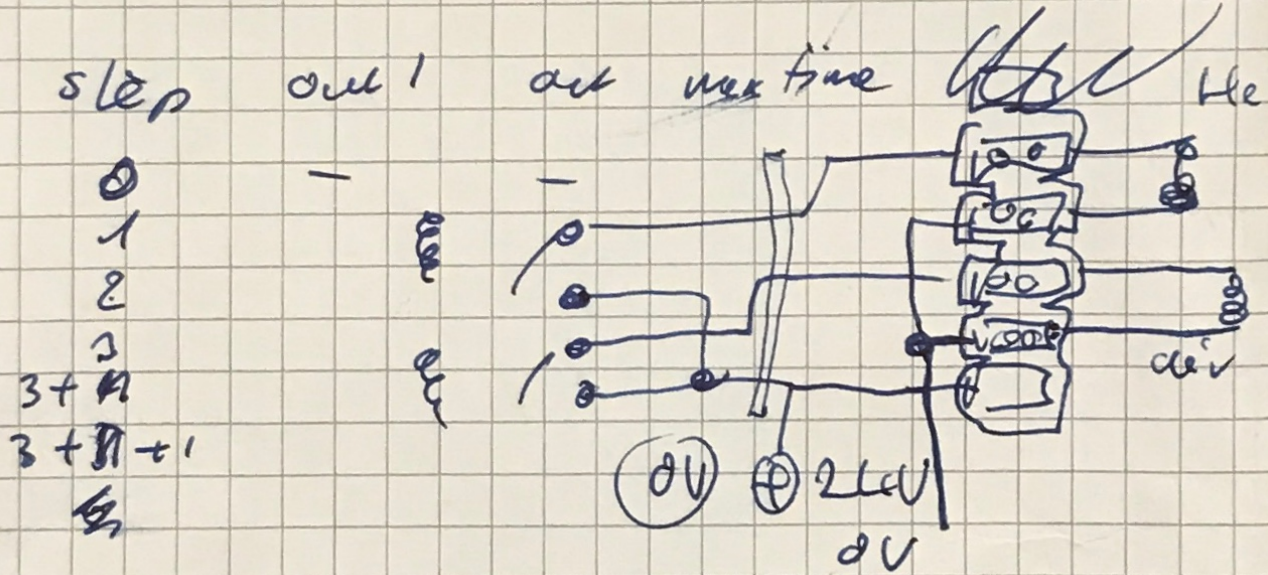 step out 1 out max time He
0 — —
1
2
3
3 + n
3 + n + 1
0V + 24V
0V